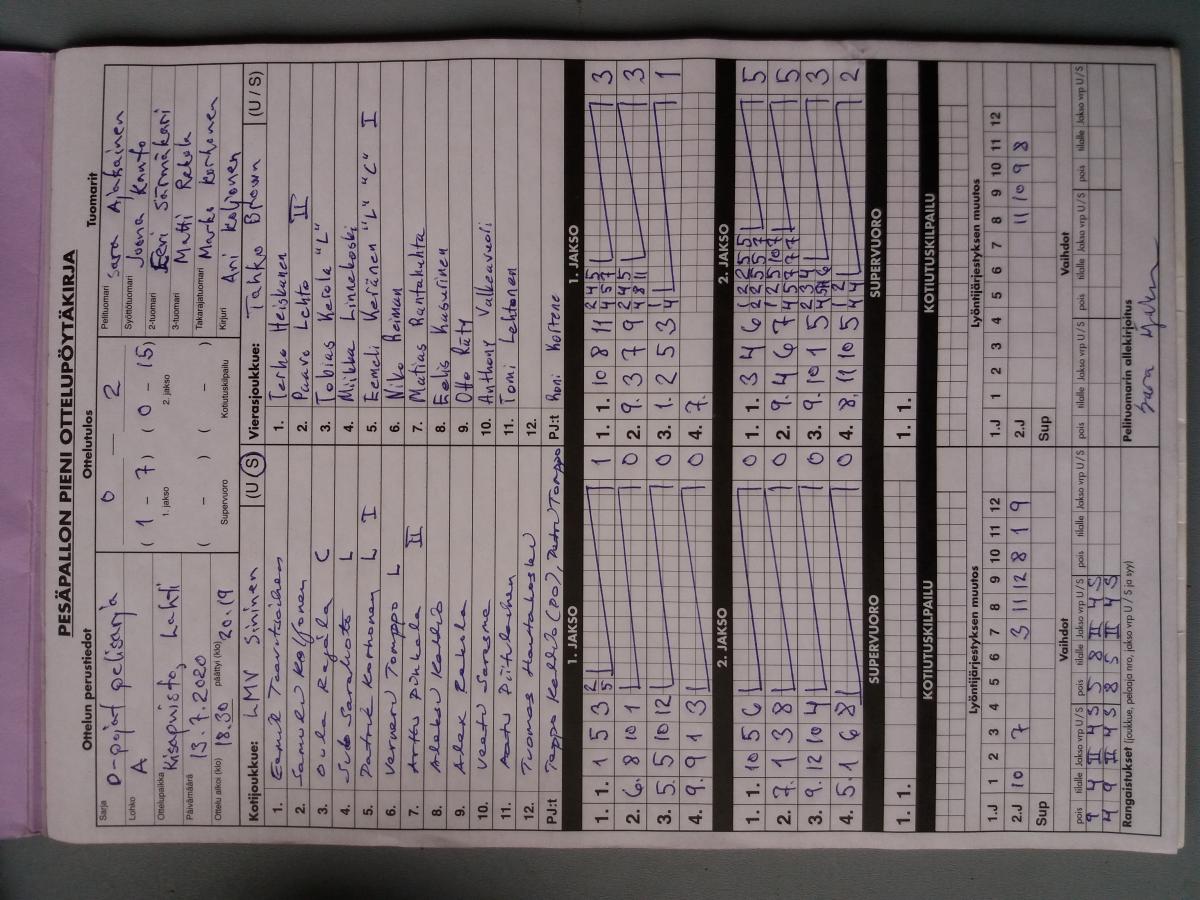 PESÄPALLON PIENI OTTELUPÖYTÄKIRJA
Ottelun perustiedot
Sarja D-pojat pelisarja
Lohko A
Ottelupaikka Kisapuisto, Lahti
Päivämäärä 13.7.2020
Ottelu alkoi (klo) 18.30 päättyi (klo) 20.19
Ottelutulos
0 — 2
( 1 - 7 ) ( 0 - 15 )
1. jakso 2. jakso
( - ) ( - )
Supervuoro Kotiutuskilpailu
Tuomarit
Pelituomari Sara Ajakainen
Syöttötuomari Joona Kauto
2-tuomari Eeri Särmäkari
3-tuomari Matti Rekola
Takarajatuomari Marko Korhonen
Kirjuri Ari Koljonen
Kotijoukkue: LMV Sininen (U / S)
1. Eemil
2. Samuel Koljonen
3. Oula Rajala C
4. L
5. Patrik Karhonen L I
6. Verneri Tomppo L
7. Arttu Pihkala II
8. Aleksi
9. Alex
10. Veetu Saresma
11. Aatu Piitulainen
12. Tuomas Hautakoski
PJ:t Tomppo
Vierasjoukkue: Tahko Brown (U / S)
1. Terho Heiskanen
2. Paavo Lehto II
3. Tobias Kerola "L"
4. Miikka Linnakoski
5. Eemeli Keränen "L" "C" I
6. Niko Reiman
7. Matias Rantakulta
8. Eelis Kasurinen
9. Otto Räty
10. Anthony Valkeavuoli
11. Tomi Lehtonen
12.
PJ:t Roni Kortene
1. JAKSO
1. 1. 1 5 3 2 5 1
2. 6. 8 10 1 0
3. 5. 5 10 12 0
4. 9. 9 1 3 0
1. JAKSO
1. 1. 10 8 11 3
2. 9. 3 7 9 3
3. 1. 2 5 3 1
4. 7.
2. JAKSO
1. 1. 10 5 6 0
2. 7. 1 3 8 0
3. 9. 12 10 4 0
4. 5. 1 6 8 0
2. JAKSO
1. 1. 3 4 6 5
2. 9. 4 6 7 5
3. 9. 10 1 5 3
4. 8. 11 10 5 2
SUPERVUORO
1. 1.
SUPERVUORO
1. 1.
KOTIUTUSKILPAILU
KOTIUTUSKILPAILU
Lyöntijärjestyksen muutos
1.J 1 2 3 4 5 6 7 8 9 10 11 12
2.J 10 7 3 11 12 8 1 9
Sup
Lyöntijärjestyksen muutos
1.J 1 2 3 4 5 6 7 8 9 10 11 12
2.J 11 10 9 8
Sup
Vaihdot
pois tilalle Jakso vrp U / S pois tilalle Jakso vrp U / S pois tilalle Jakso vrp U / S
9 4 II 4 S 5 8 II 4 S
4 9 II 4 S 8 5 II 4 S
Vaihdot
pois tilalle Jakso vrp U / S pois tilalle Jakso vrp U / S pois tilalle Jakso vrp U / S
Rangaistukset (joukkue, pelaaja nro, jakso vrp U / S ja syy)
Pelituomarin allekirjoitus
Sara